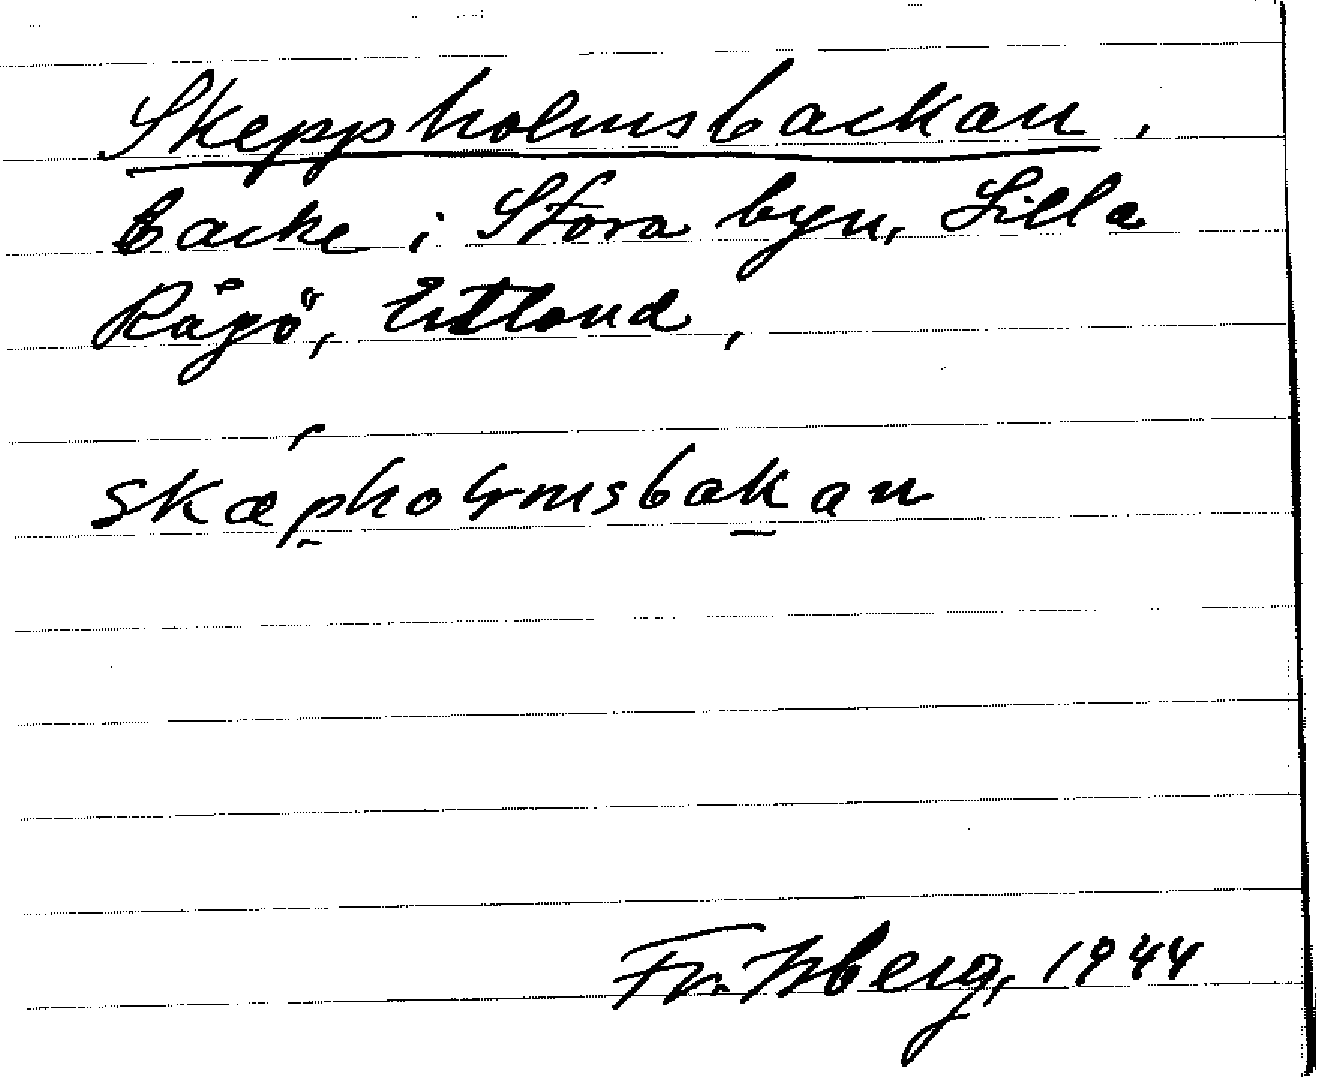 Skeppholmsbackan.
backe i Stora byn, Lilla
Rågö, Estland,
skæpholmsbakan
1944